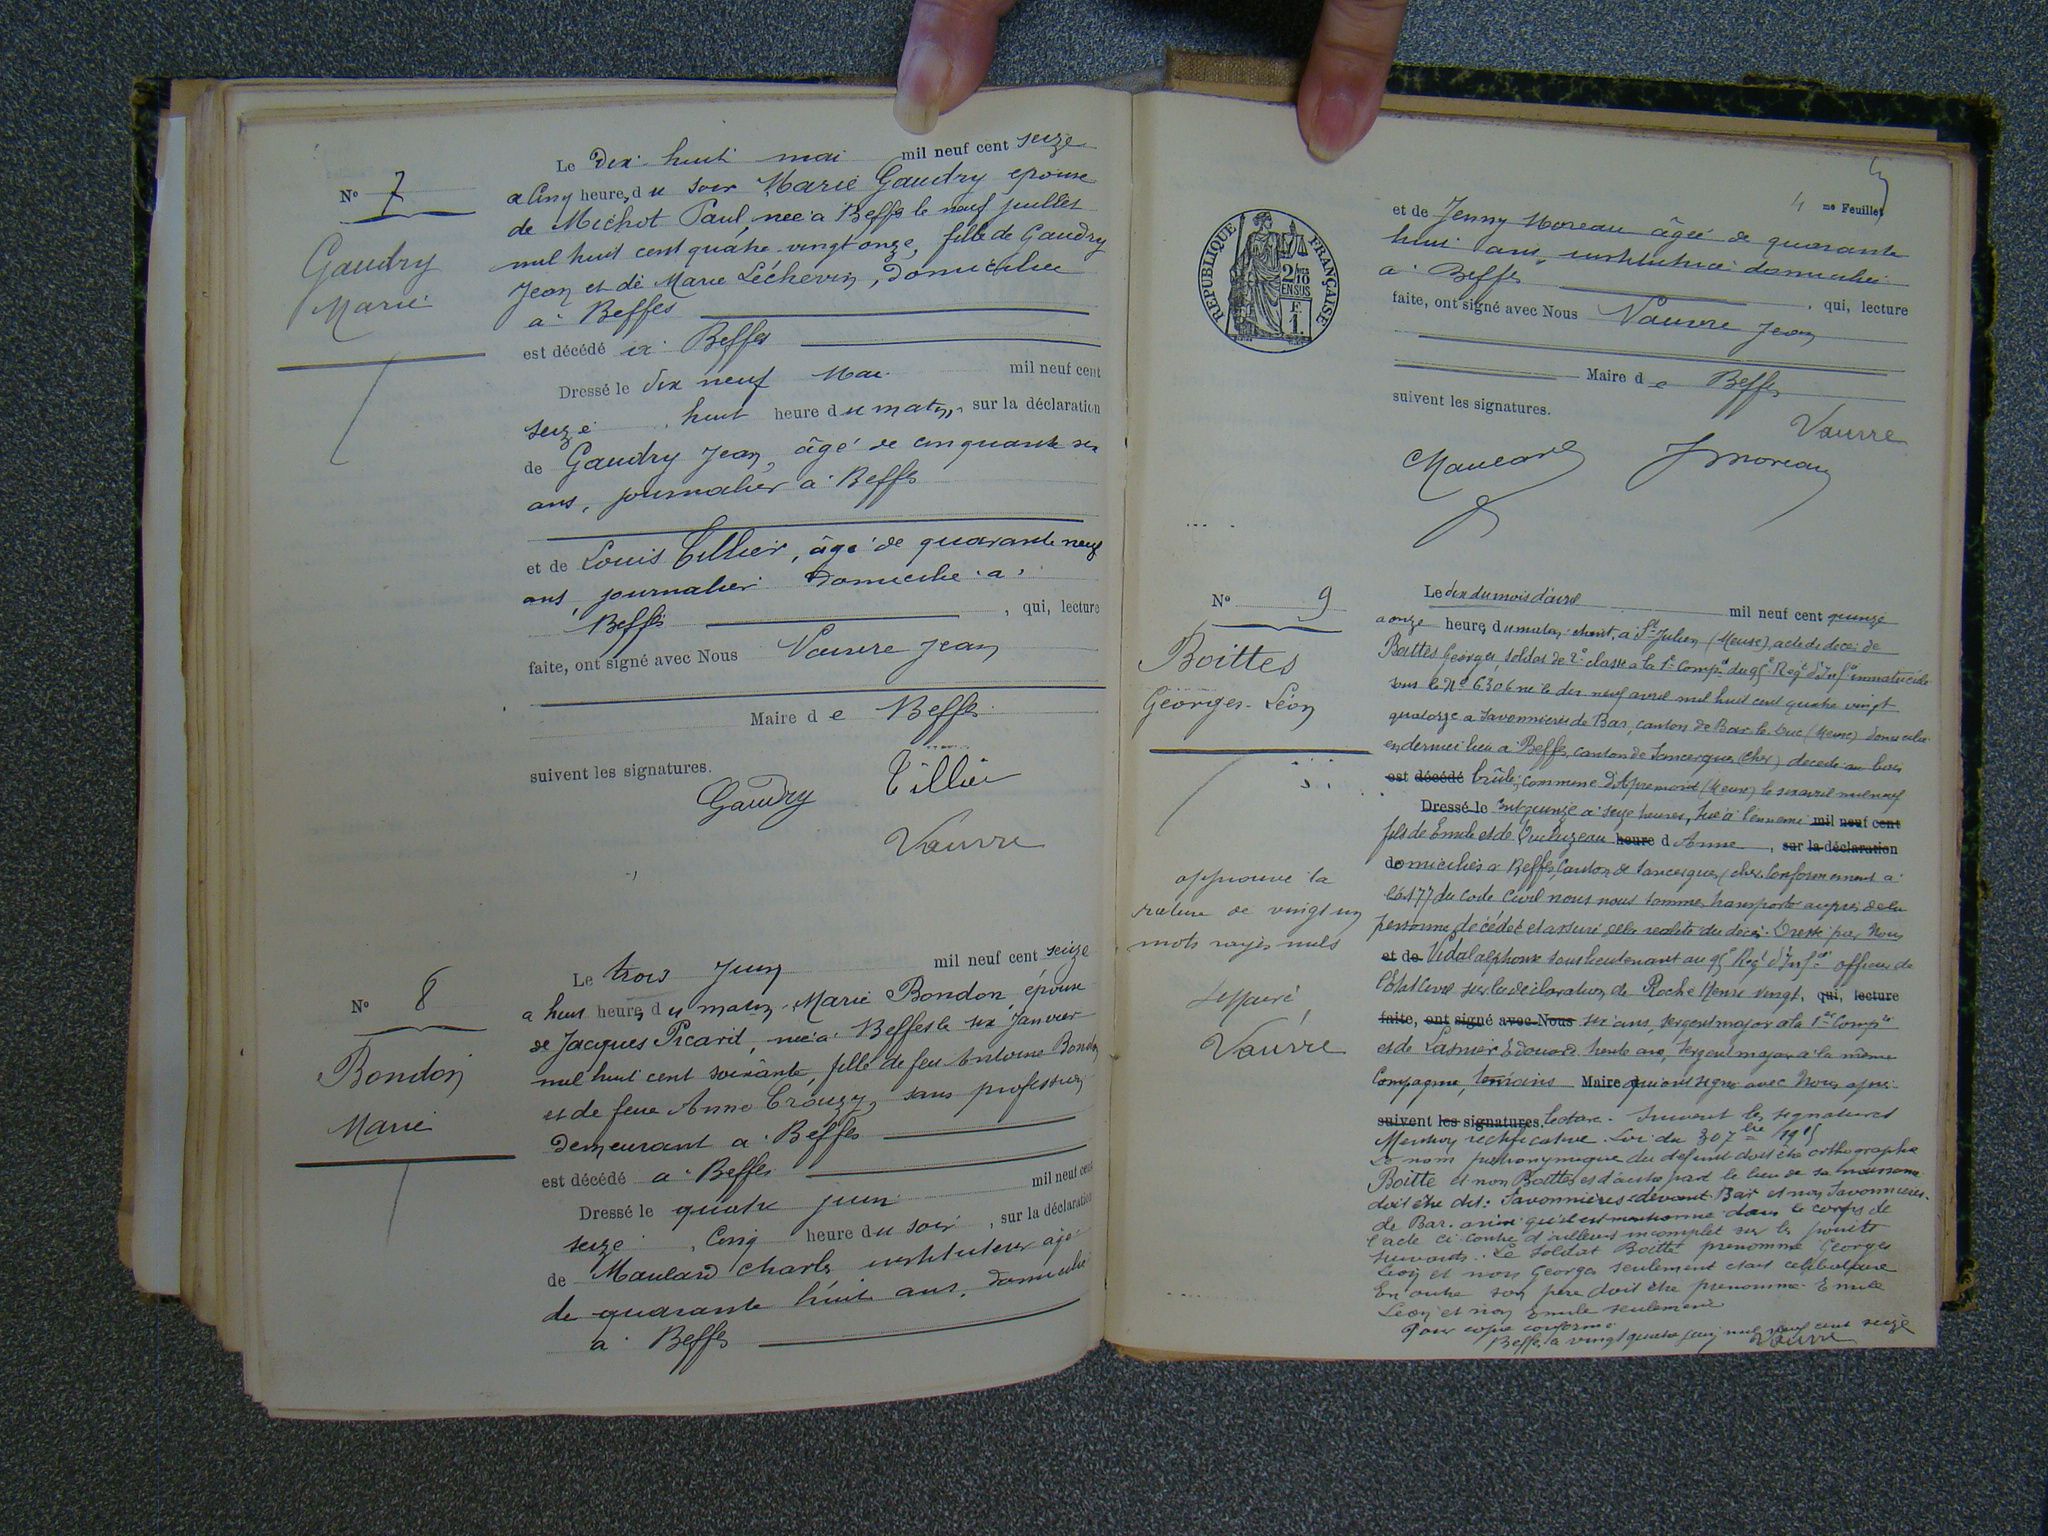 Le Dix huit mai mil neuf cent seize
N° 7
a Cinq heure, du soir Marie Gaudry epouse
de Michot Paul, née à Beffes le neuf juillet
mil huit cent quatre vingt onze, fille de Gaudry
Jean et de Marie Léchevin, domiciliée
à Beffes
Gaudry
Marie
est décédé à Beffes
Dressé le dix neuf Mai mil neuf cent
seize, huit heure du matin, sur la déclaration
de Gaudry Jean, âgé de cinquante six
ans, journalier à Beffes
et de Louis Tillier, âgé de quarante neuf
ans, journalier domicilié à
Beffes, qui, lecture
faite, ont signé avec Nous Vauvre Jean
Maire de Beffes
suivent les signatures.
Gaudry Tillier
Vauvre
Le trois Juin mil neuf cent seize
N° 8
a huit heure, du matin, Marie Bondon, épouse
de Jacques Picard, née à Beffes le six Janvier
mil huit cent soixante, fille de feu Antoine Bondon
et de feue Anne Crouzy, sans profession
demeurant à Beffes
Bondon
Marie
est décédé à Beffes
Dressé le quatre juin mil neuf cent
seize, Cinq heure du soir, sur la déclaration
de Maulard Charles instituteur âgé
de quarante huit ans, domicilié
à Beffes
4 me Feuillet
5
RÉPUBLIQUE FRANÇAISE
2/10
EN SUS
F.
1.
et de Jenny Moreau âgée de quarante
huit ans, institutrice domiciliée
à Beffes, qui, lecture
faite, ont signé avec Nous Vauvre Jean
Maire de Beffes
suivent les signatures.
Vauvre
JMoreau
N° 9
Boittes
Georges-Léon
approuvé la
rature de vingt un
mots rayés nuls
Le Maire,
Vauvre
Le dix du mois d'avril mil neuf cent quinze
a onze heure, du matin étant, à St Julien (Meuse), acte de décès de
Boittes Georges, soldat de 2e classe à la 1e Compie du 95e Regt d'Infie immatriculé
sous le N° 6306 né le dix neuf avril mil huit cent quatre vingt
quatorze a Savonnières de Bar, canton de Bar le Duc (Meuse) domicilié
en dernier lieu à Beffes, canton de Sancergues (Cher) décédé au bois
est décédé brûlé, commune d'Apremont (Meuse) le six avril mil neuf
Dressé le cent quinze à seize heures, tué à l'ennemi mil neuf cent
fils de Emile et de heure d Anne, sur la déclaration
domiciliés à Beffes, Canton de Sancergues (cher. Conformément à
l'art 77 du Code Civil nous nous sommes transporté auprès de la
personne décédée et assuré de la réalité du décès. Dressé par Nous
et de Vidal alphonse sous lieutenant au 95e Regt d'Infie officier de
l'Etat Civil sur la déclaration de Roche Henri vingt, qui, lecture
faite, ont signé avec Nous six ans, sergent major à la 1ère Compie
et de Lasnier Edouard, trente ans, sergent major à la même
Compagnie, témoins Maire qui ont signé avec Nous après
suivent les signatures. lecture. Suivent les signatures
Mention rectificative. Loi du 30 7bre 1915
Le nom patronymique du defunt doit être orthographié
Boitte et non Boittes et d'autre part le lieu de sa naissance
doit être dit: Savonnières-devant-Bar et non Savonnières-
de Bar. ainsi qu'il est mentionné dans le corps de
l'acte ci contre d'ailleurs incomplet sur les points
suivants. Le soldat Boitte prénommé Georges
Léon et non Georges seulement était célibataire
En outre son père doit être prénommé Emile
Léon et non Emile seulement
Pour copie conforme
Beffes le vingt quatre juin mil neuf cent seize
Vauvre